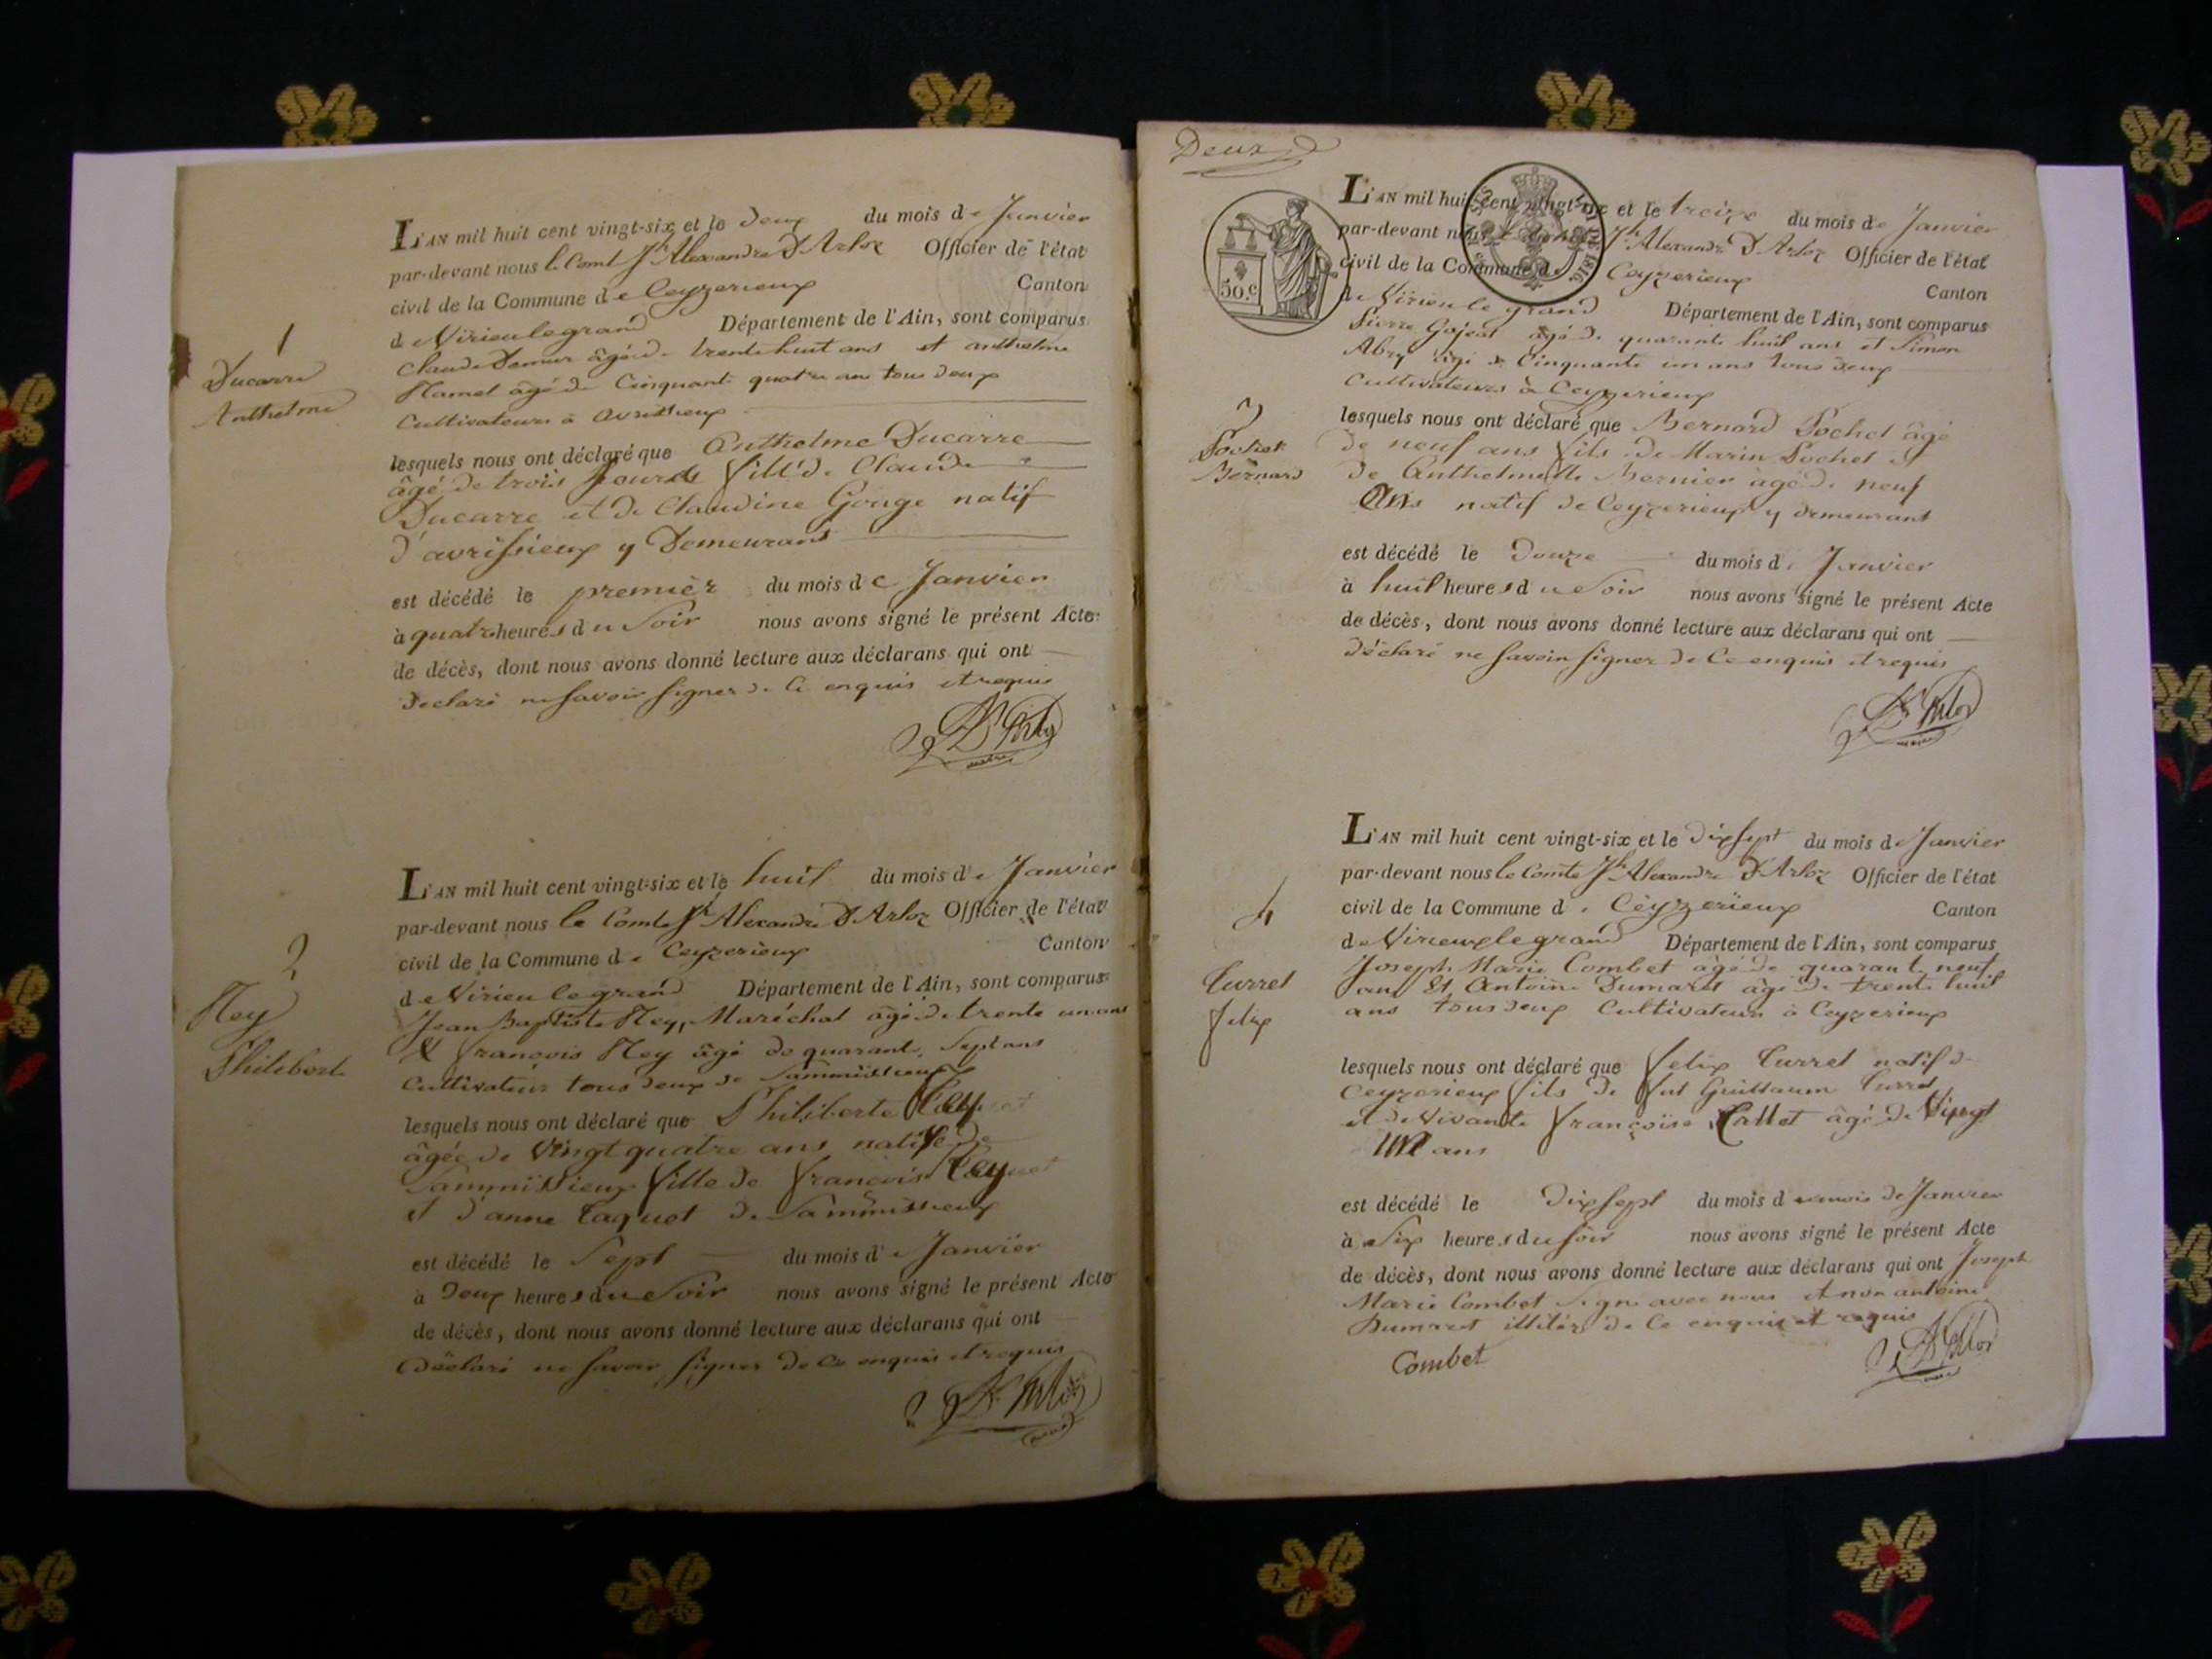 1
Ducarre
Anthelme
L'AN mil huit cent vingt-six et le deux du mois de Janvier
par-devant nous le Comt Jh Alexandre D'Arloz Officier de l'état
civil de la Commune de Ceyzerieux Canton
de Virieu le grand Département de l'Ain, sont comparus
Claude âgé de trente huit ans et anthelme
Hamel âgé de Cinquante quatre ans tous deux
Cultivateurs à avrissieux
lesquels nous ont déclaré que Anthelme Ducarre
âgé de trois jours fill de Claude
Ducarre et de Claudine Gouge natif
d'avrissieux y Demeurant
est décédé le premièr du mois de Janvier
à quatre heures du Soir nous avons signé le présent Acte
de décès, dont nous avons donné lecture aux déclarans qui ont
Declaré ne Savoir signer de Ce enquis et requis
2
Rey
Philiberte
L'AN mil huit cent vingt-six et le huit du mois de Janvier
par-devant nous le Comte Jh Alexandre D'Arloz Officier de l'état
civil de la Commune de Ceyzerieux Canton
de Virieu le grand Département de l'Ain, sont comparus
Jean Baptiste Rey, Maréchal âgé de trente un ans
& françois Rey âgé de quarante Sept ans
Cultivateur tous deux de Sammissieux
lesquels nous ont déclaré que Philiberte Rey
âgée de Vingt quatre ans native de
Sammissieux fille de françois Rey
et d'anne Taquet de Sammissieux
est décédé le Sept du mois de Janvier
à Deux heures du Soir nous avons signé le présent Acte
de décès, dont nous avons donné lecture aux déclarans qui ont
Déclaré ne Savoir signer de Ce enquis et requis
Deux
50.c
1816
3
Pochet
Bernard
L'AN mil huit cent vingt-six et le treize du mois de Janvier
par-devant nous Jh Alexandre D'Arloz Officier de l'état
civil de la Commune de Ceyzerieux Canton
de Virieu le grand Département de l'Ain, sont comparus
Pierre Gojeat âgé de quarante huit ans et Simon
Abry âgé de Cinquante un ans tous deux
Cultivateurs à Ceyzerieux
lesquels nous ont déclaré que Bernard Pochet âgé
de neuf ans fils de Marin Pochet et
de Anthelmette Bernier âgé de neuf
Ans natif de Ceyzerieux y demeurant
est décédé le Douze du mois de Janvier
à huit heures du Soir nous avons signé le présent Acte
de décès, dont nous avons donné lecture aux déclarans qui ont
Déclaré ne Savoir signer de Ce enquis et requis
4
Curret
felix
L'AN mil huit cent vingt-six et le Dix sept du mois de Janvier
par-devant nous le Comte Jh Alexandre D'Arloz Officier de l'état
civil de la Commune de Ceyzerieux Canton
de Virieux le grand Département de l'Ain, sont comparus
Joseph Marie Combet âgé de quarante neuf
ans Et Antoine Dumaret âgé de trente huit
ans tous deux Cultivateurs à Ceyzerieux
lesquels nous ont déclaré que felix Curret natif de
Ceyzerieux fils de fut Guillaume Curret
et de Vivante françoise Callet âgé de Vingt
un ans
est décédé le dix sept du mois d mois de Janvier
à Six heures du Soir nous avons signé le présent Acte
de décès, dont nous avons donné lecture aux déclarans qui ont Joseph
Marie Combet Signé avec nous et non antoine
Dumaret illitéré de Ce enquis et requis
Combet